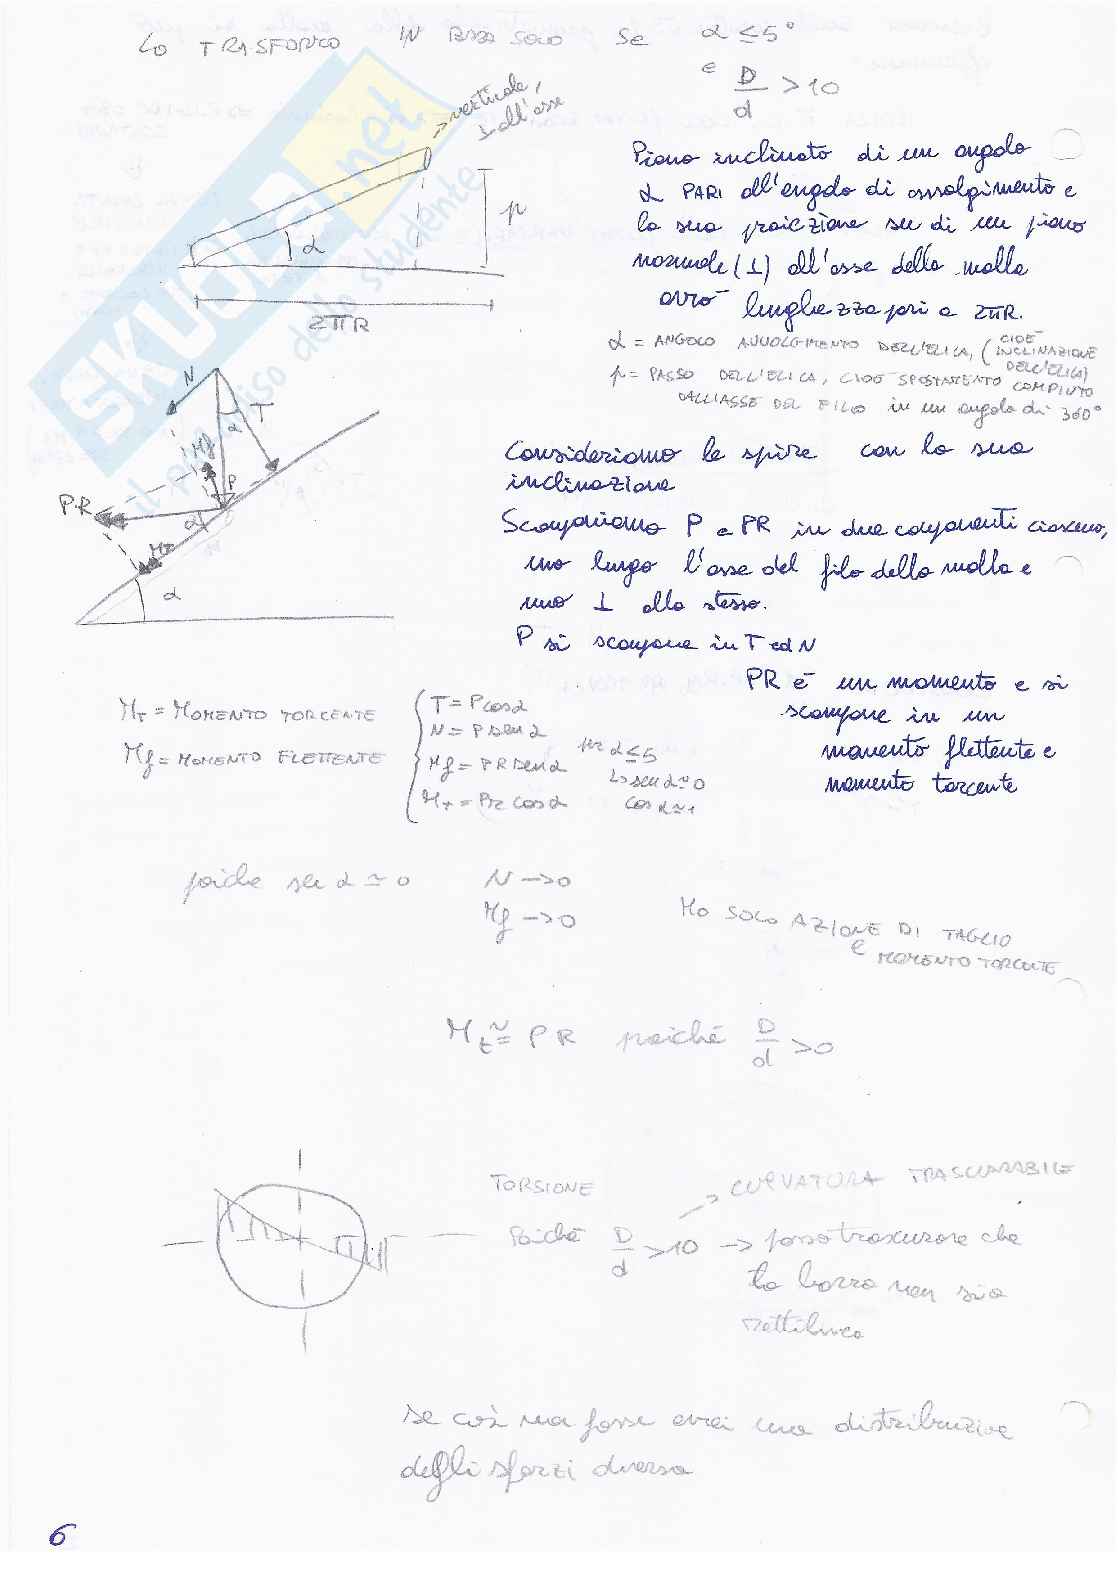 LO TRASFORMO IN BARRA SOLO SE α ≤ 5°
e D/d > 10
verticale,
⊥ all'asse
p
α
2πR
Piano inclinato di un angolo
α PARI all'angolo di avvolgimento e
la sua proiezione su di un piano
normale (⊥) all'asse della molla
avrò lunghezza pari a 2πR.
α = ANGOLO AVVOLGIMENTO DELL'ELICA, (CIOÈ INCLINAZIONE DELL'ELICA)
p = PASSO DELL'ELICA, CIOÈ SPOSTAMENTO COMPIUTO
DALL'ASSE DEL FILO in un angolo di 360°
N
T
α
Mf
P
PR
α
Mt
α
Consideriamo le spire con la sua
inclinazione
Scomponiamo P e PR in due componenti ciascuno,
uno lungo l'asse del filo della molla e
uno ⊥ allo stesso.
P si scompone in T ed N
PR è un momento e si
scompone in un
momento flettente e
momento torcente
MT = MOMENTO TORCENTE
Mf = MOMENTO FLETTENTE
T = P cos α
N = P sen α
Mf = PR sen α
Mt = PR cos α
per α ≤ 5
↳ sen α ≃ 0
cos α ≃ 1
poiche sen α ≃ 0
N → 0
Mf → 0
HO SOLO AZIONE DI TAGLIO
e MOMENTO TORCENTE
Mt ≅ PR poiché D/d > 0
TORSIONE
→ CURVATURA TRASCURABILE
Poiché D/d > 10 → posso trascurare che
la barra non sia
rettilinea
se così non fosse avrei una distribuzione
degli sforzi diversa
6
SKUOLA.net
il paradiso dello studente